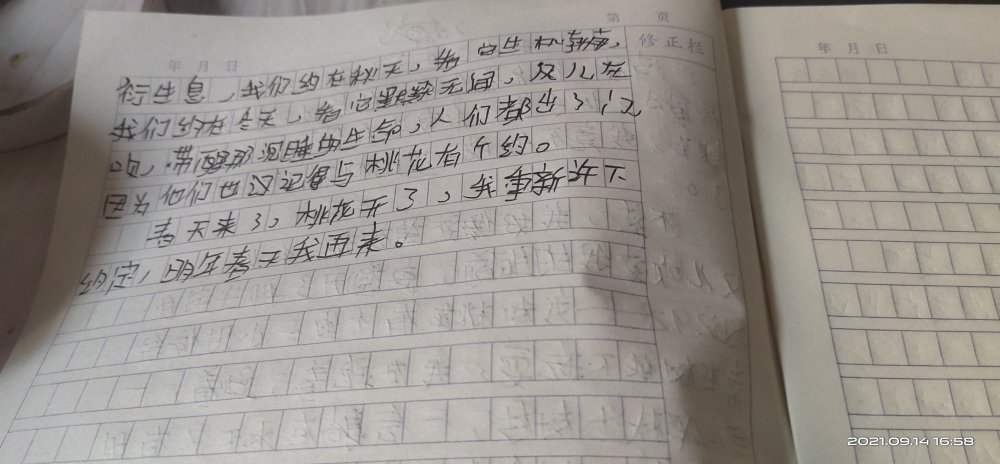 第 页
修正栏
年 月 日
年 月 日
衍生息，我们约在秋天，看 生机勃勃，
我们约在冬天，看 无间，风儿在
吹，带醒那沉睡的生命，人们都出了门
因为他们也没记得与桃花有个约。
春天来了，桃花开了，我重新许下
约定，明年春天我再来。
2021.09.14 16:58